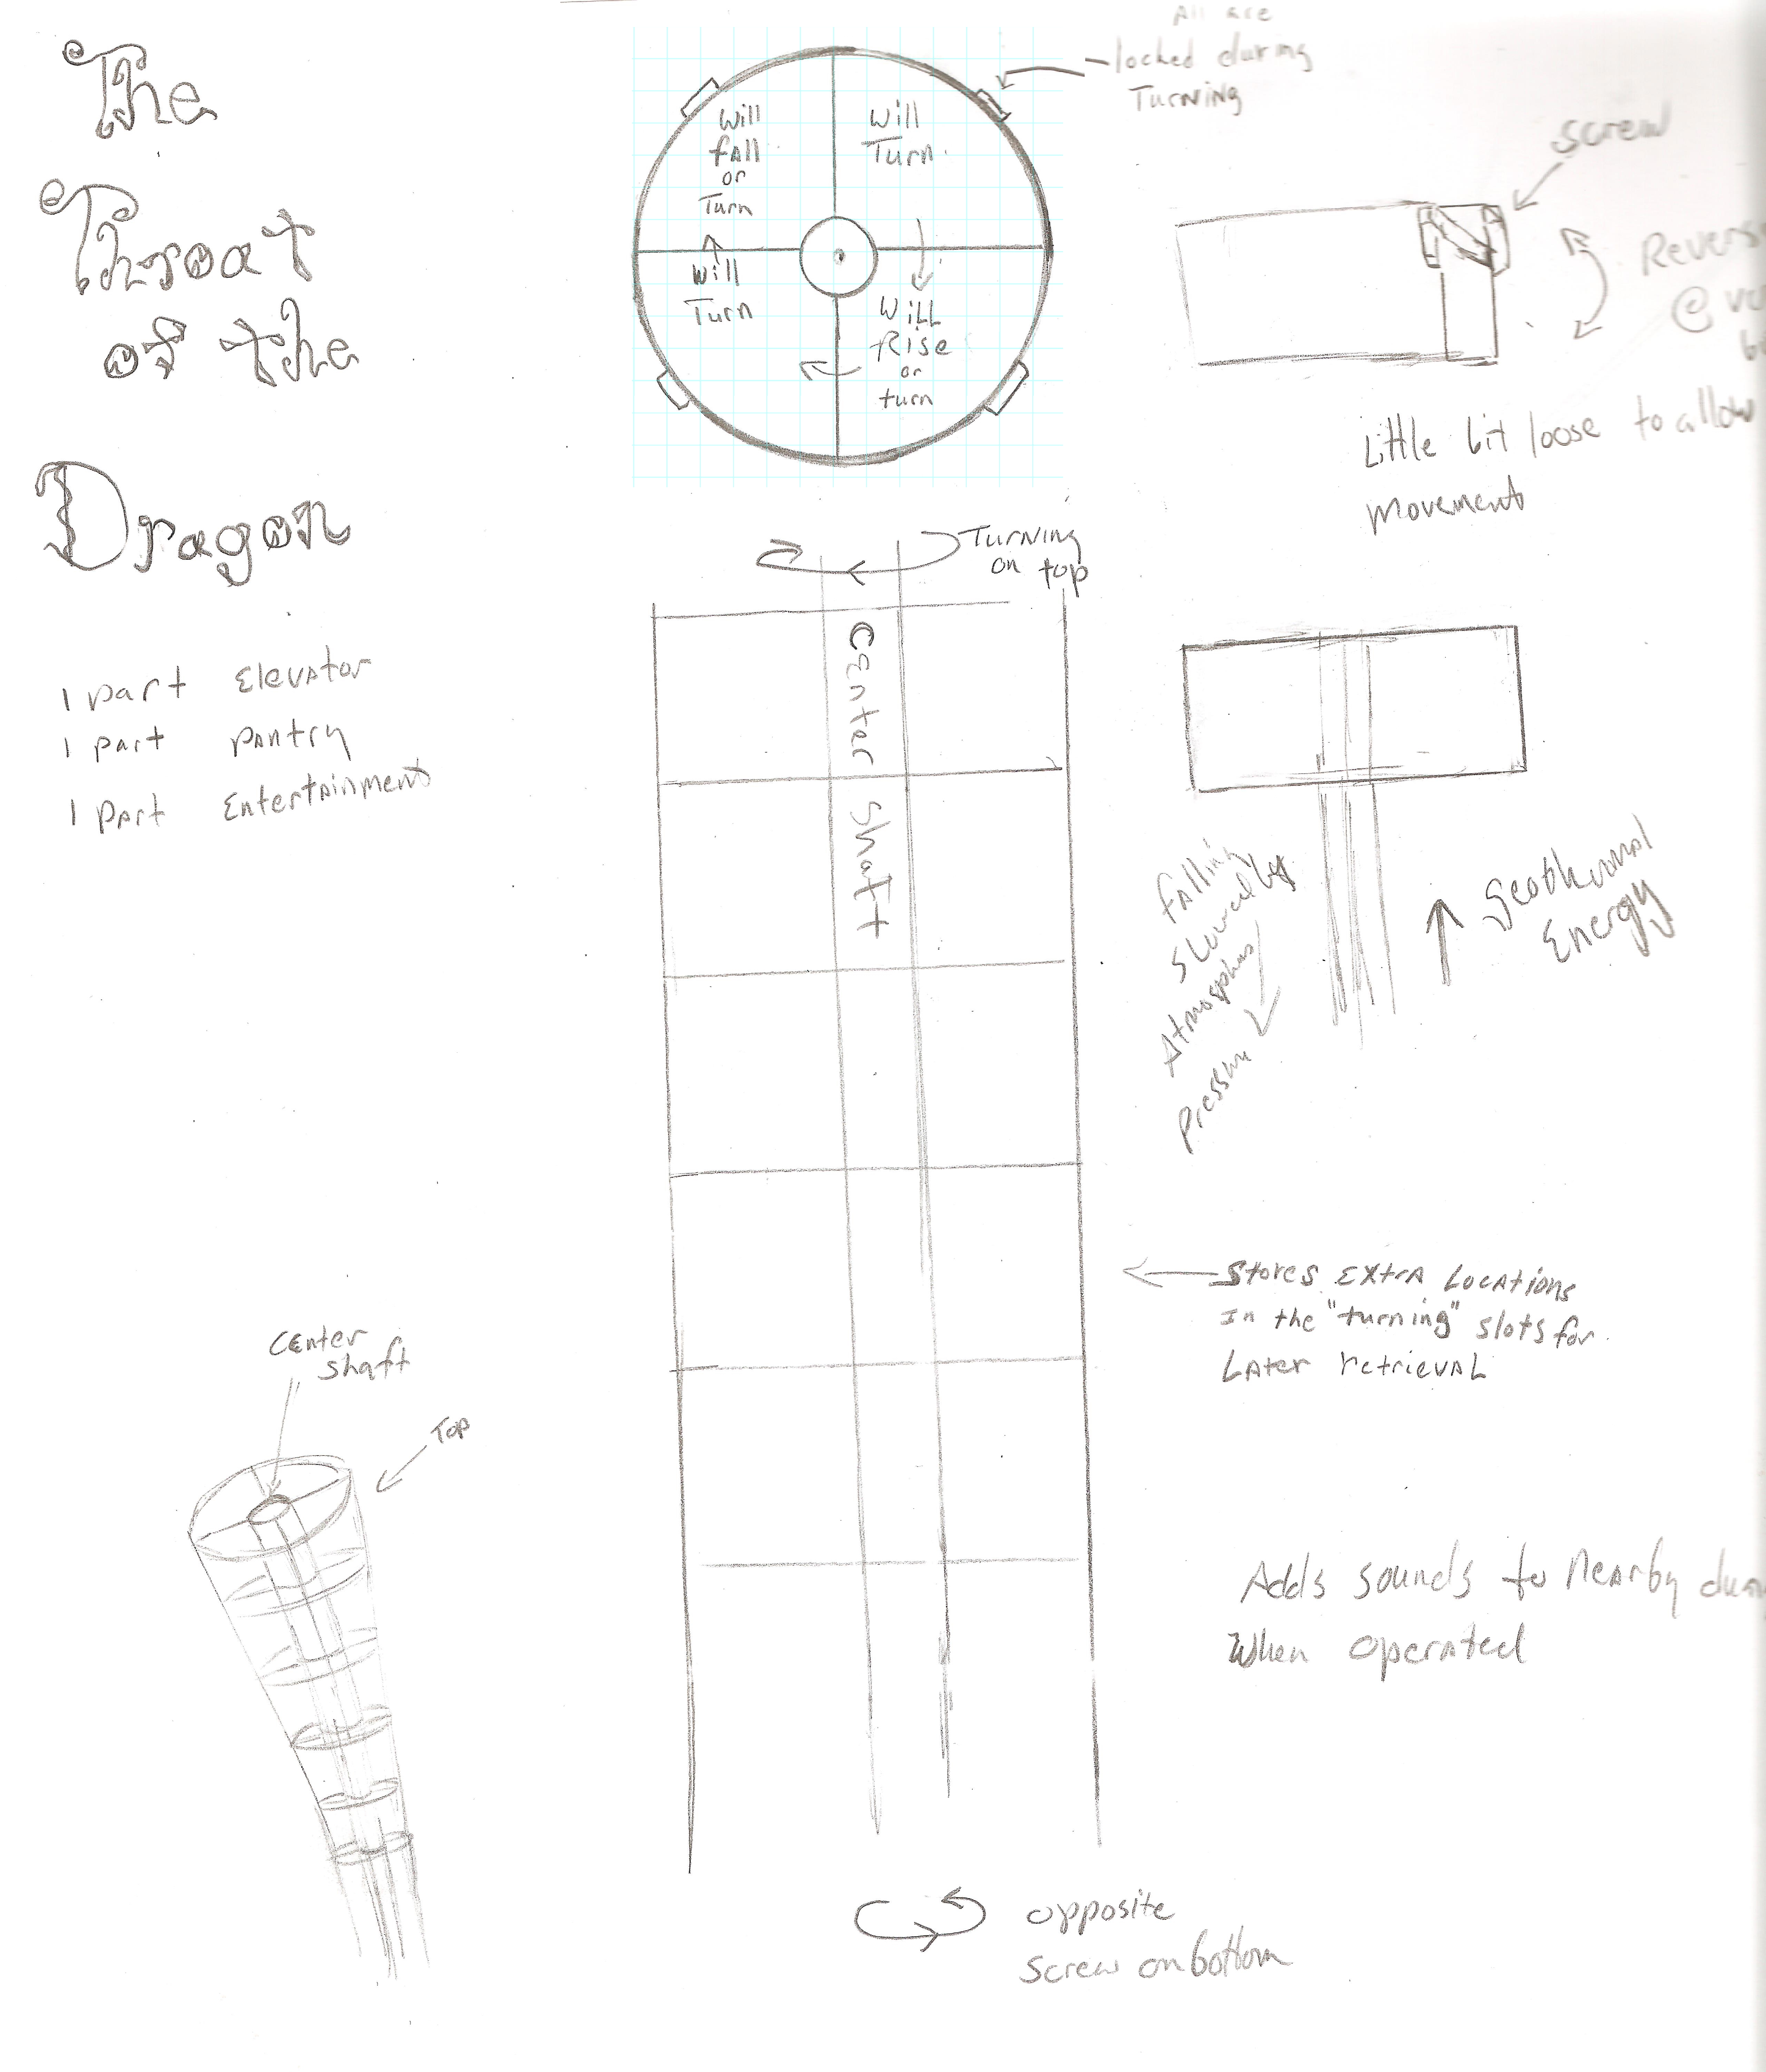 The
Throat
of the
Dragon
1 part Elevator
1 part pantry
1 part Entertainment
All are
locked during
Turning
Will
fall
or
Turn
Will
Turn
Will
Turn
Will
Rise
or
turn
screw
@
Little bit loose to allow
movement
Turning
on top
Center Shaft
Falling
Slowed by
Pressure
Geothermal
Energy
Stores Extra Locations
In the "turning" slots for
Later retrieval
Center
Shaft
Top
Adds sounds to nearby
When operated
opposite
screw on bottom